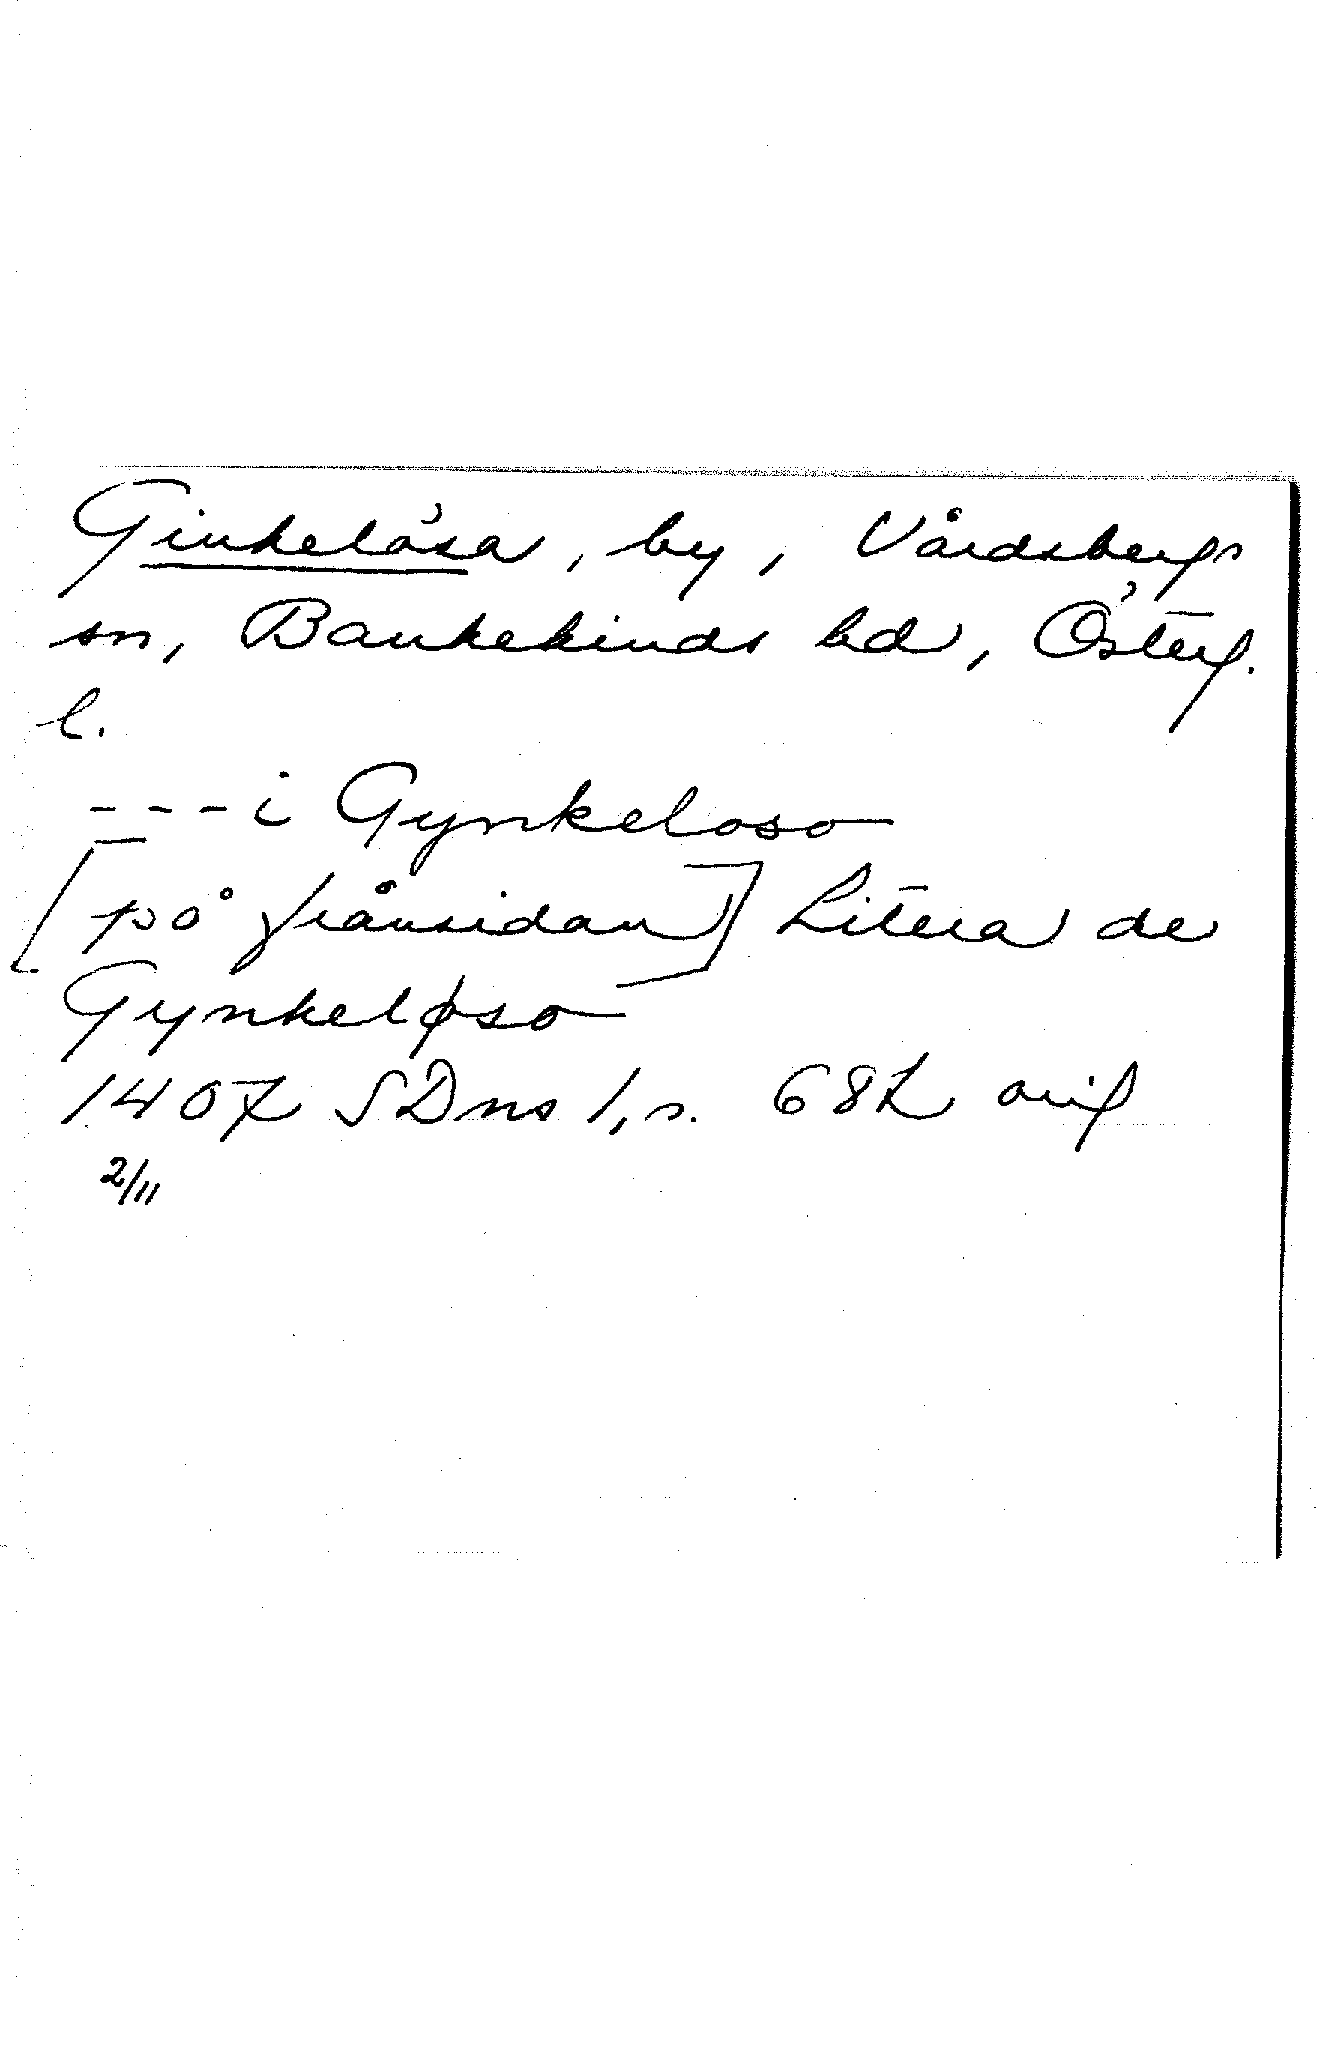 Ginkelösa, by, Vårdsbergs
sn, Bankekinds hd, Österg.
l.
---i Gynkeloso
[på frånsidan] Litera de
Gynkeløso
1407 SDns 1, s. 682 orig
2/11